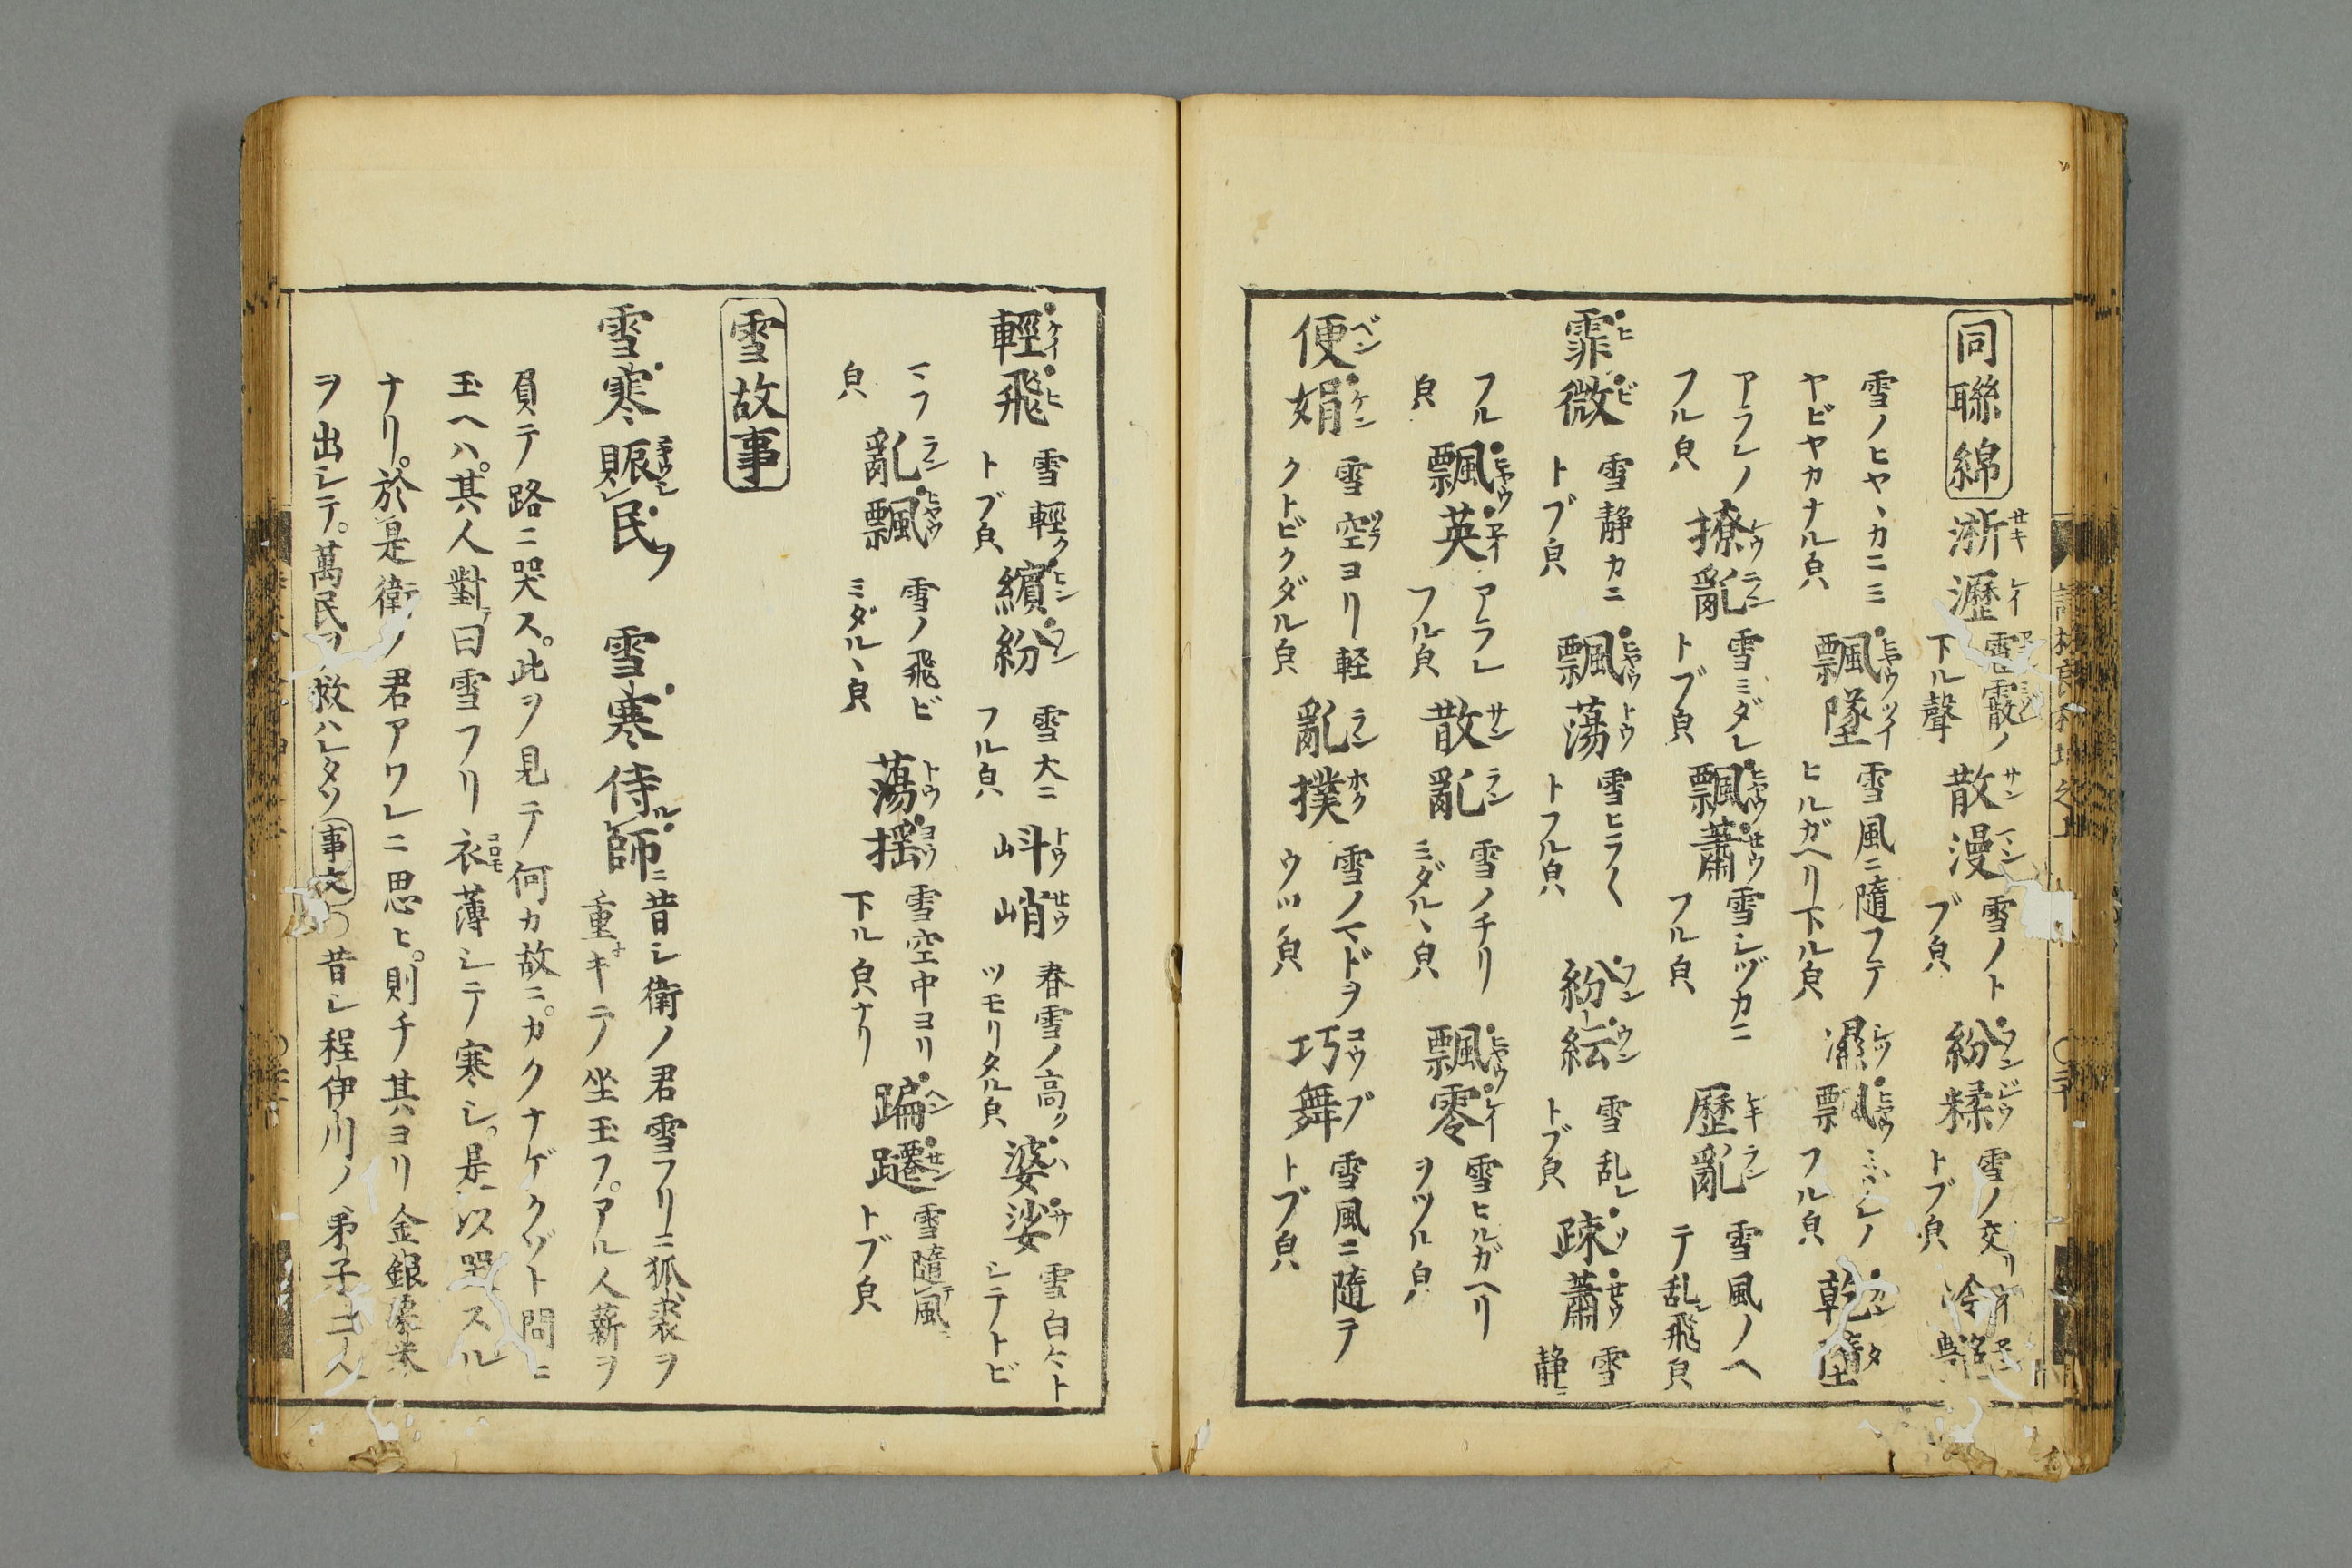 同聯綿 淅瀝 雪霰ノ下ル聲 散漫 雪ノトブ㒵 紛糅 雪ノ交リトブ㒵 冷艶
雪ノヒヤヽカニミヤビヤカナル㒵 飄墜 雪風ニ隨フテヒルガヘリ下ル㒵 濕飄 ミゾレノフル㒵 乾墮
アラレノフル㒵 撩亂 雪ミダレトブ㒵 飄蕭 雪シヅカニフル㒵 歷亂 雪風ノヘテ乱飛㒵
霏微 雪静カニトブ㒵 飄蕩 雪ヒラ〱トフル㒵 紛紜 雪乱レトブ㒵 疎蕭 雪静ニ
フル㒵 飄英 アラレフル㒵 散亂 雪ノチリミダルヽ㒵 飄零 雪ヒルガヘリヲツル㒵
便娟 雪空ヨリ軽クトビクダル㒵 亂撲 雪ノマドヲウツ㒵 巧舞 雪風ニ隨テトブ㒵
輕飛 雪輕クトブ㒵 繽紛 雪大ニフル㒵 㪷峭 春雪ノ高クツモリタル㒵 婆娑 雪白々トシテトビ
マフ㒵 亂飄 雪ノ飛ビミダルヽ㒵 蕩揺 雪空中ヨリ下ル㒵ナリ 蹁躚 雪隨風ニトブ㒵
雪故事
雪寒賑民ヲ 雪寒侍師ニ 昔シ衛ノ君雪フリニ狐裘ヲ重キテ坐玉フ。アル人薪ヲ
負テ路ニ哭ス。此ヲ見テ何カ故ニ。カクナゲクゾト問ニ
玉ヘハ。其人對曰雪フリ衣薄シテ寒シ。是以哭スル
ナリ。於是衛ノ君アワレニ思ヒ。則チ其ヨリ金銀廩米
ヲ出シテ。萬民ヲ救ハレタリ 事文 〇昔シ程伊川ノ弟子